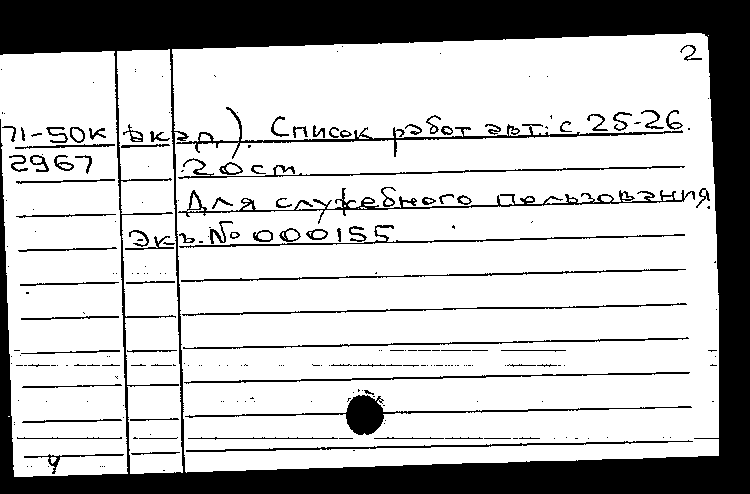 2
71-50к акад.). Список работ авт.: с. 25-26.
2967 20 ст.
Для служебного пользования.
Экз. № 000155
4